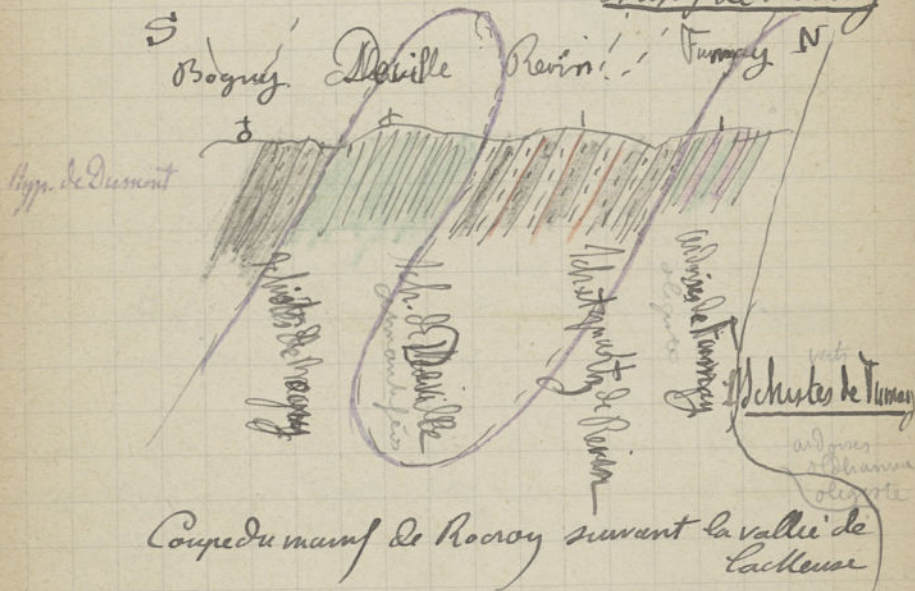 S
Bogny Deville Revin Fumay N
Hyp. de Dumont
schistes de Bogny
sch. de Deville
aimantifère
sch et quartz de Revin
ardoises de Fumay
oligiste
verts
Schistes de Fumay
ardoises
oligiste
Coupe du massif de Rocroy suivant la vallée de
la Meuse